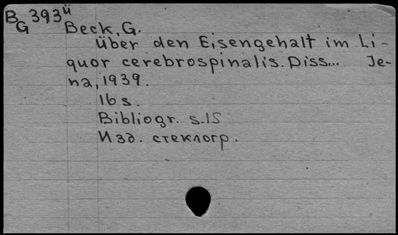 B 393ü
G
Beck, G.
Über den Eisengehalt im Li-
quor cerebrospinalis. Diss... Je-
na, 1939.
16 s.
Bibliogr. s. 15
Изд. стеклогр.